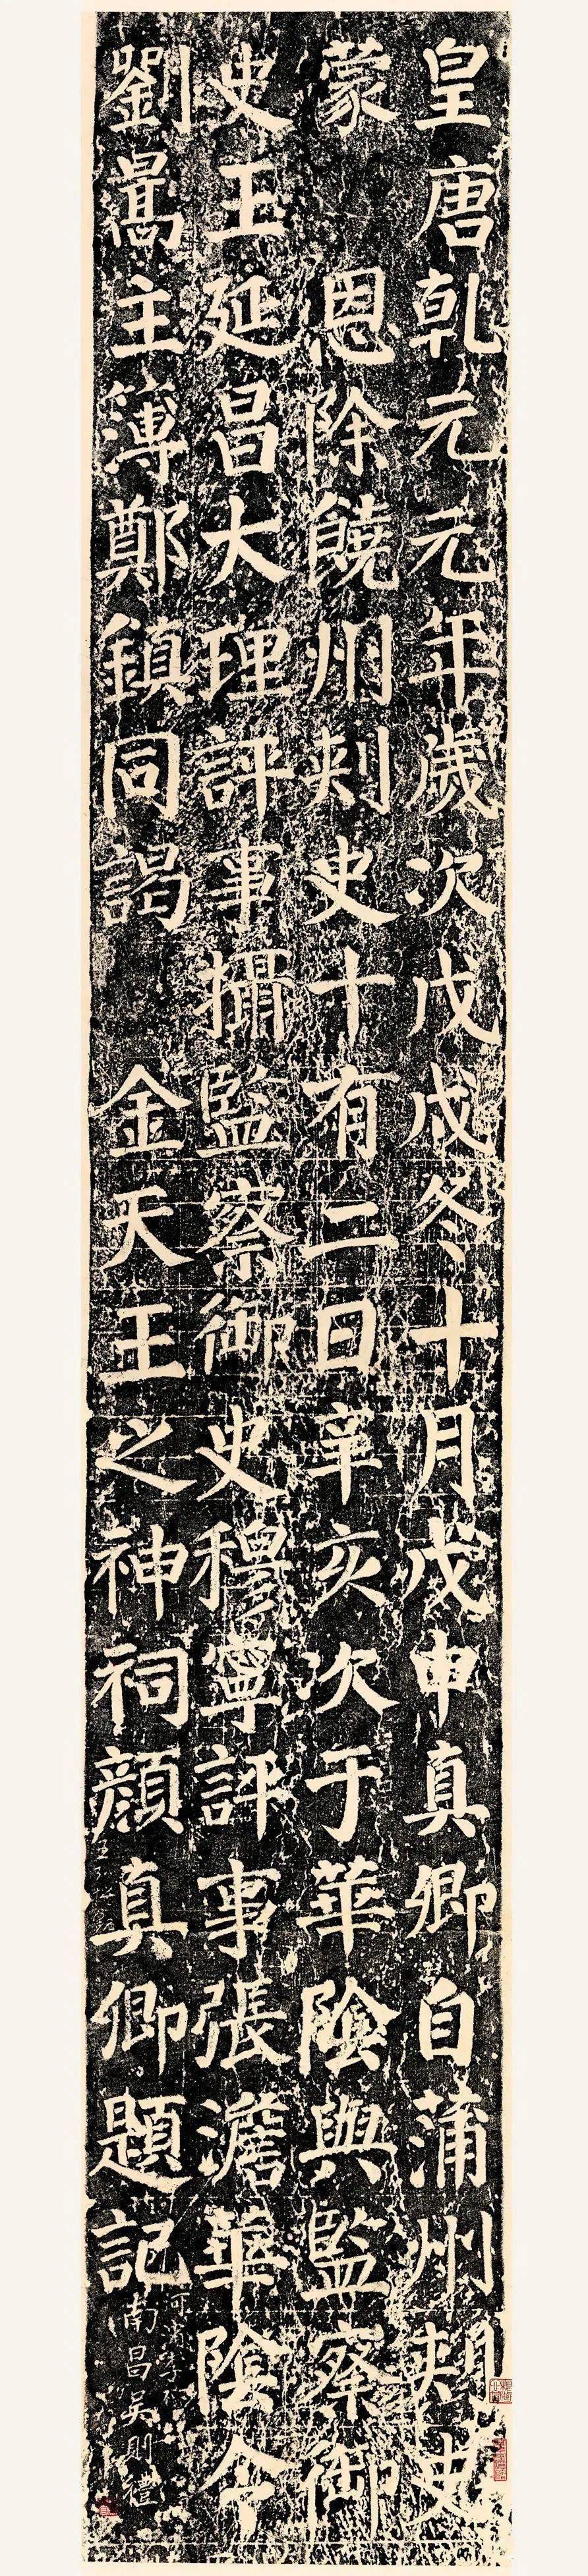 皇唐乾元元年歲次戊戌冬十月戊申真卿自蒲州刺史
蒙 恩除饒州刺史十有二日辛亥次于華陰與監察御
史王延昌大理評事攝監察御史穆寧評事張澹華陰令
劉暠主簿鄭鎮同謁 金天王之神祠顏真卿題記
南昌吳則禮